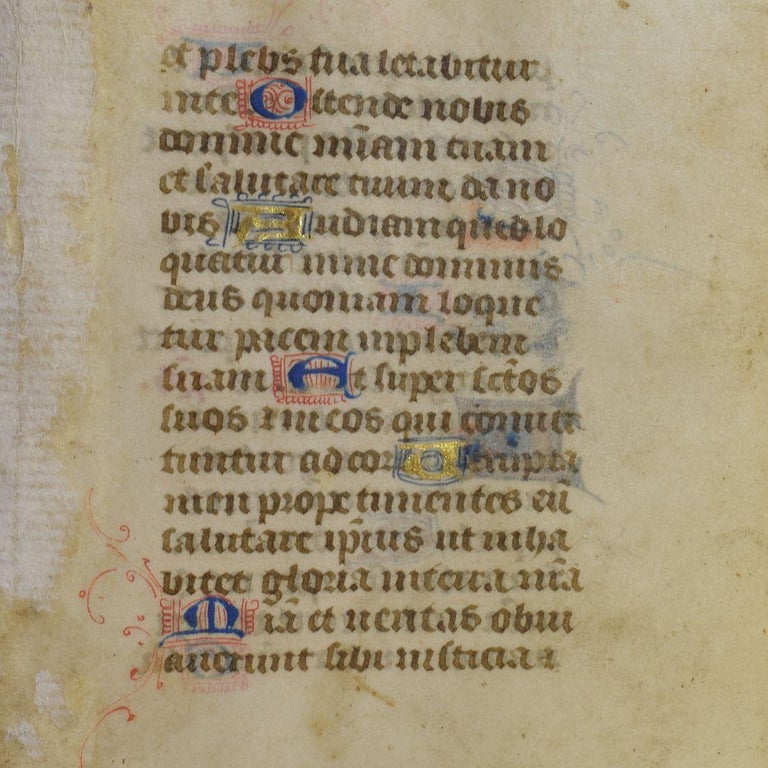 et plebs tua letabitur
inte Ostende nobis
domine mīam tuam
et salutare tuum da no
vis Audiam quid lo
quatur inme dominus
deus quoniam loque
tur pacem inplebem
suam Et super sc̄tos
suos ⁊ in eos qui conuer
tuntur ad cor
men prope timentes eū
salutare ip̄ius ut inha
bitet gloria interra nr̄a
Mia et ueritas obui
auerunt sibi iusticia